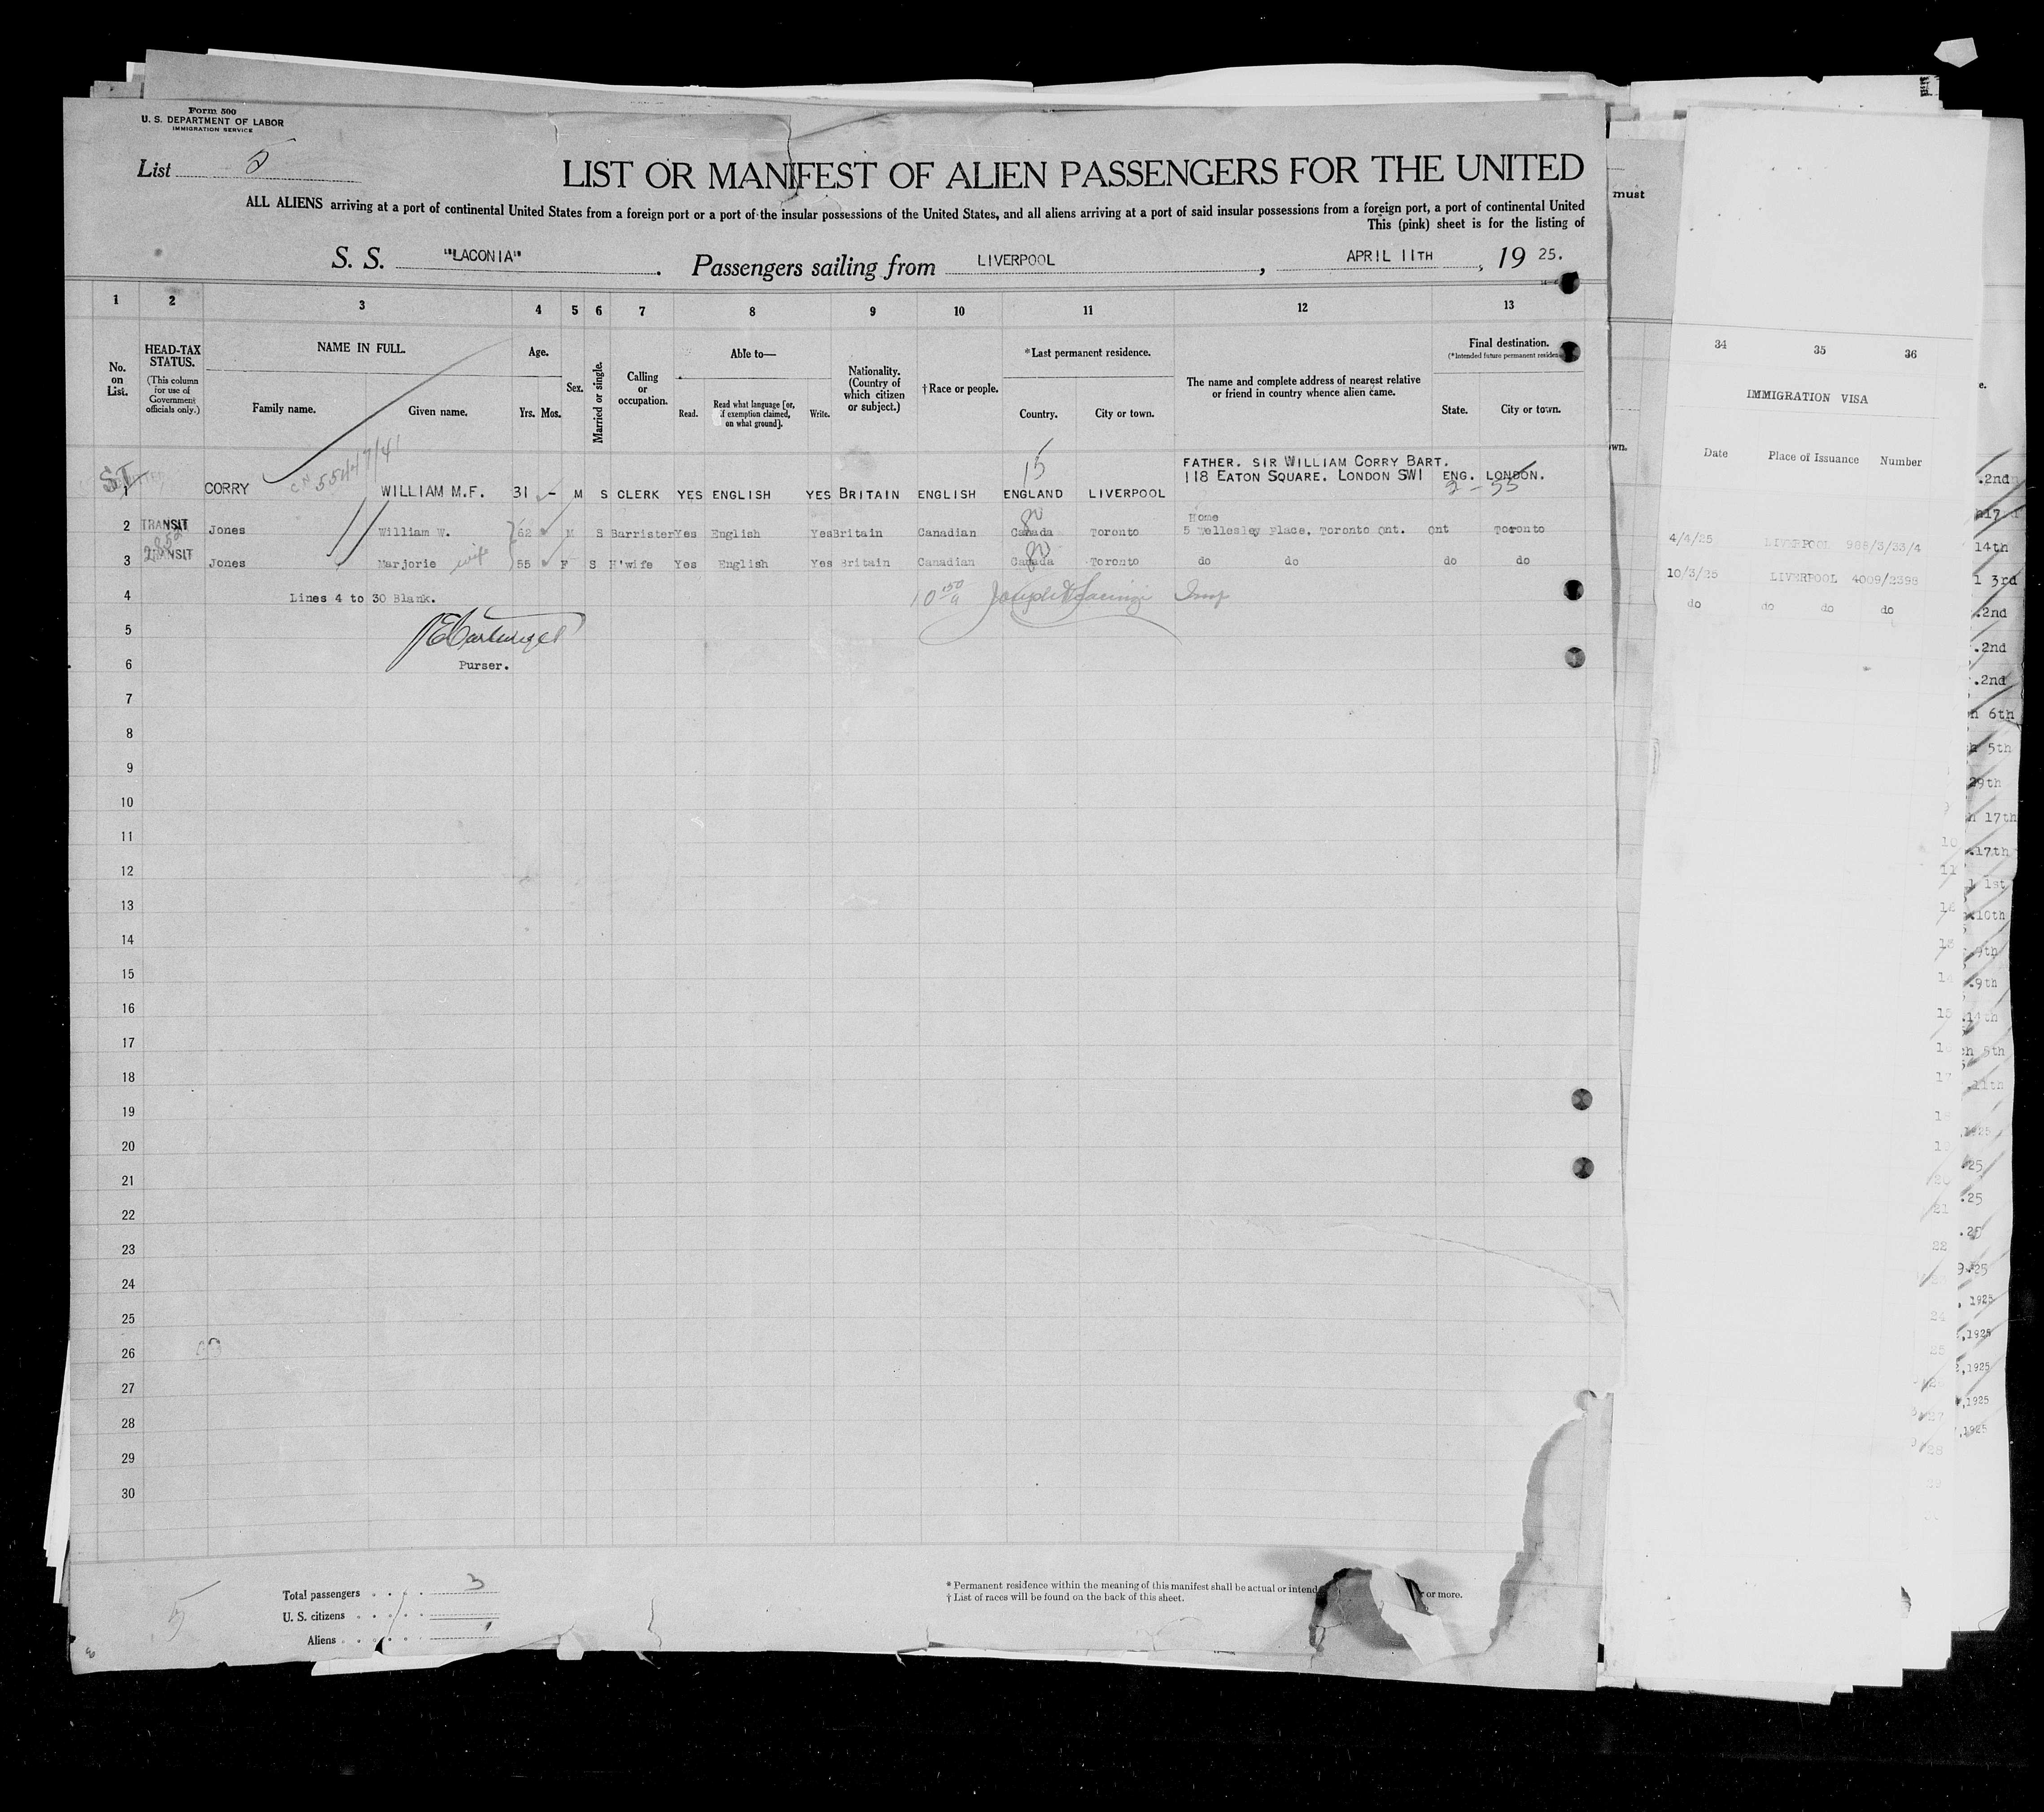 Form 500
U. S. DEPARTMENT OF LABOR
IMMIGRATION SERVICE
List 5
LIST OR MANIFEST OF ALIEN PASSENGERS FOR THE UNITED
ALL ALIENS arriving at a port of continental United States from a foreign port or a port of the insular possessions of the United States, and all aliens arriving at a port of said insular possessions from a foreign port, a port of continental United
This (pink) sheet is for the listing of
must
S. S. "LACONIA" . Passengers sailing from LIVERPOOL , APRIL 11TH , 19 25.
1 2 3 4 5 6 7 8 9 10 11 12 13
No. on List.
HEAD-TAX STATUS.
(This column for use of Government officials only.)
NAME IN FULL.
Family name. Given name.
Age.
Yrs. Mos.
Sex.
Married or single.
Calling or occupation.
Able to—
Read. Read what language [or, if exemption claimed, on what ground]. Write.
Nationality. (Country of which citizen or subject.)
†Race or people.
*Last permanent residence.
Country. City or town.
The name and complete address of nearest relative or friend in country whence alien came.
Final destination.
(*Intended future permanent residen
State. City or town.
34 35 36
IMMIGRATION VISA
Date Place of Issuance Number
15
FATHER. SIR WILLIAM CORRY BART.
1 CORRY WILLIAM M.F. 31 - M S CLERK YES ENGLISH YES BRITAIN ENGLISH ENGLAND LIVERPOOL 118 EATON SQUARE. LONDON SW1 ENG. LONDON.
Home
2 TRANSIT Jones William W. 62 M S Barrister Yes English Yes Britain Canadian Canada Toronto 5 Wellesley Place, Toronto Ont. Ont Toronto
3 TRANSIT Jones Marjorie wife 55 F S H'wife Yes English Yes Britain Canadian Canada Toronto do do do do
4/4/25 LIVERPOOL 985/3/33/4
10/3/25 LIVERPOOL 4009/2398
do do do do
4 Lines 4 to 30 Blank.
5
6 Purser.
7
8
9
10
11
12
13
14
15
16
17
18
19
20
21
22
23
24
25
26
27
28
29
30
5
Total passengers 3
U. S. citizens
Aliens
* Permanent residence within the meaning of this manifest shall be actual or intend or more.
† List of races will be found on the back of this sheet.
.2nd
14th
3rd
.2nd
.2nd
.2nd
6th
5th
29th
17th
.17th
1st
.10th
.9th
.9th
.14th
.25
.25
.25
1925
,1925
,1925
,1925
,1925